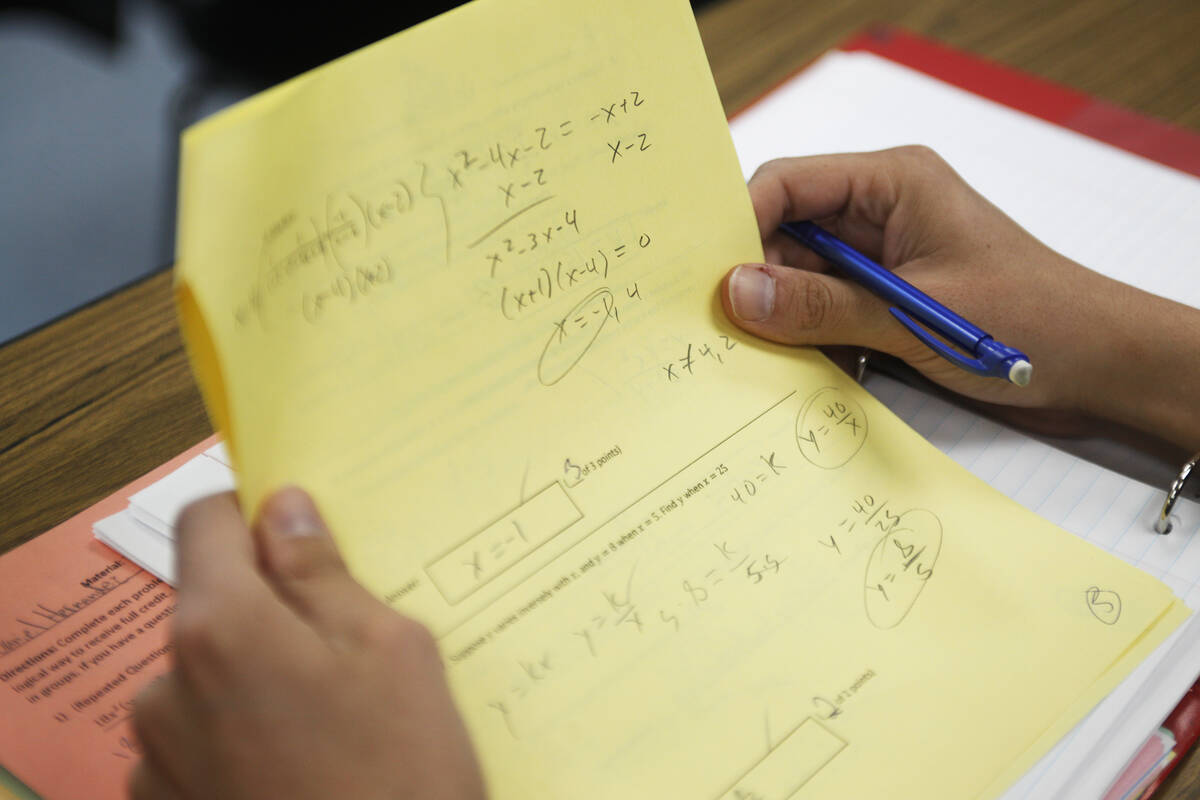 x²-4x-2 = -x+2
x-2 x-2
x²-3x-4
(x-2)
(x-4)(x-2)
(x+1)(x-4) = 0
x = -1, 4
x ≠ 4, 2
3 of 3 points)
x = -1
Suppose y varies inversely with x, and y = 8 when x = 5. Find y when x = 25
y = kx
y = k/x
5·8 = k/5·5
40 = k
y = 40/x
y = 40/25
y = 8/5
2 of 2 points)
3
Material:
Directions: Complete each proble
logical way to receive full credit.
in groups. If you have a questio
1) (Repeated Question